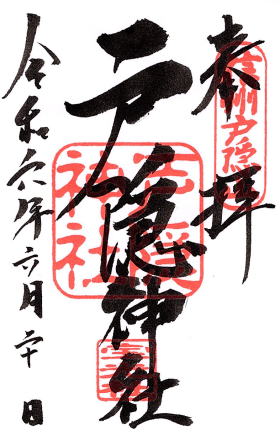 奉拝
信州戸隠
戸隠神社
戸隠神社
令和六年六月二十日